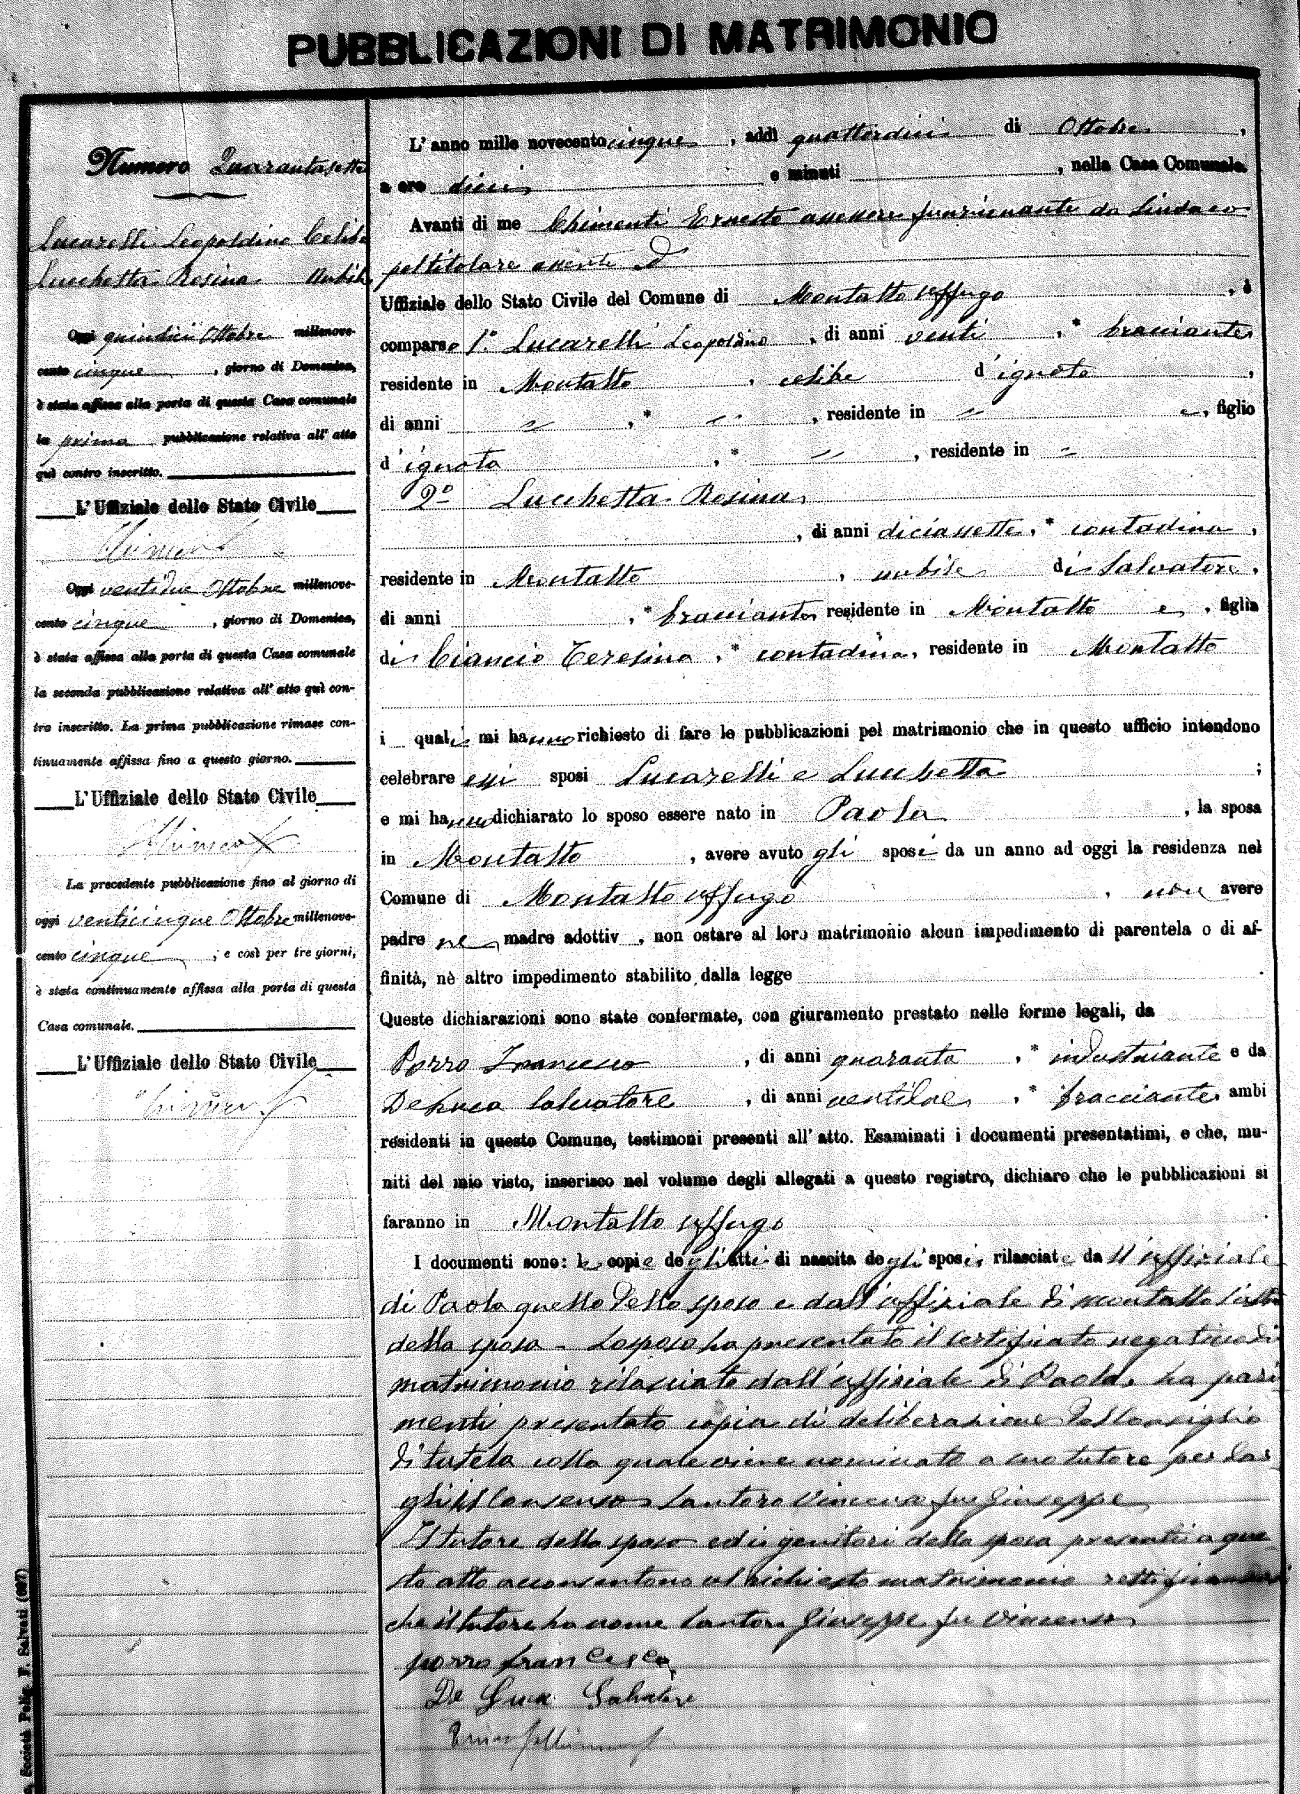 PUBBLICAZIONI DI MATRIMONIO
Numero Quarantasette
Lucarelli Leopoldino Celibe
Lucchetta Rosina nubile
Oggi quindici Ottobre millenove-
cento cinque, giorno di Domenica,
è stata affissa alla porta di questa Casa comunale
la prima pubblicazione relativa all' atto
quì contro inscritto.
L'Uffiziale dello Stato Civile
Oggi ventidue Ottobre millenove-
cento cinque, giorno di Domenica,
è stata affissa alla porta di questa Casa comunale
la seconda pubblicazione relativa all' atto quì con-
tro inscritto. La prima pubblicazione rimase con-
tinuamente affissa fino a questo giorno.
L'Uffiziale dello Stato Civile
La precedente pubblicazione fino al giorno di
oggi venticinque Ottobre millenove-
cento cinque; e così per tre giorni,
è stata continuamente affissa alla porta di questa
Casa comunale.
L'Uffiziale dello Stato Civile
L' anno mille novecento cinque, addì quattordici di Ottobre,
a ore dieci e minuti , nella Casa Comunale.
Avanti di me Chimenti Ernesto assessore funzionante da Sindaco
pel titolare assente
Uffiziale dello Stato Civile del Comune di Montalto Uffugo, è
comparso 1.° Lucarelli Leopoldino, di anni venti, * bracciante
residente in Montalto, celibe d'ignoto,
di anni " , * " , residente in " e, figlio
d'ignota , * " , residente in "
2° Lucchetta Rosina
, di anni diciassette, * contadina,
residente in Montalto, nubile di Salvatore,
di anni , * bracciante residente in Montalto e, figlia
di Ciancio Teresina, * contadina, residente in Montalto
i quali mi hanno richiesto di fare le pubblicazioni pel matrimonio che in questo ufficio intendono
celebrare essi sposi Lucarelli e Lucchetta ;
e mi hanno dichiarato lo sposo essere nato in Paola, la sposa
in Montalto, avere avuto gli sposi da un anno ad oggi la residenza nel
Comune di Montalto Uffugo, non avere
padre ne madre adottiv , non ostare al loro matrimonio alcun impedimento di parentela o di af-
finità, nè altro impedimento stabilito dalla legge .
Queste dichiarazioni sono state confermate, con giuramento prestato nelle forme legali, da
Porro Francesco, di anni quaranta, * industriante e da
De Luca Salvatore, di anni ventitre, * bracciante, ambi
residenti in questo Comune, testimoni presenti all' atto. Esaminati i documenti presentatimi, e che, mu-
niti del mio visto, inserisco nel volume degli allegati a questo registro, dichiaro che le pubblicazioni si
faranno in Montalto Uffugo
I documenti sono: le copie degli atti di nascita degli sposi, rilasciate da ll'uffiziale
di Paola quello dello sposo e dall'uffiziale di Montalto
della sposa - Lo sposo ha presentato il certificato negativo di
matrimonio rilasciato dall'uffiziale di Paola, ha pari
menti presentato copia di deliberazione del Consiglio
di tutela colla quale viene nominato a suo tutore per dar
gli il Consenso Santoro Vincenzo fu Giuseppe
Il tutore dello sposo ed i genitori della sposa presenti a que
sto atto acconsentono al richiesto matrimonio rettificandosi
che il tutore ha nome Santoro Giuseppe fu Vincenzo
porro francesco
De Luca Salvatore
Società Polig. F. Salvati (627)